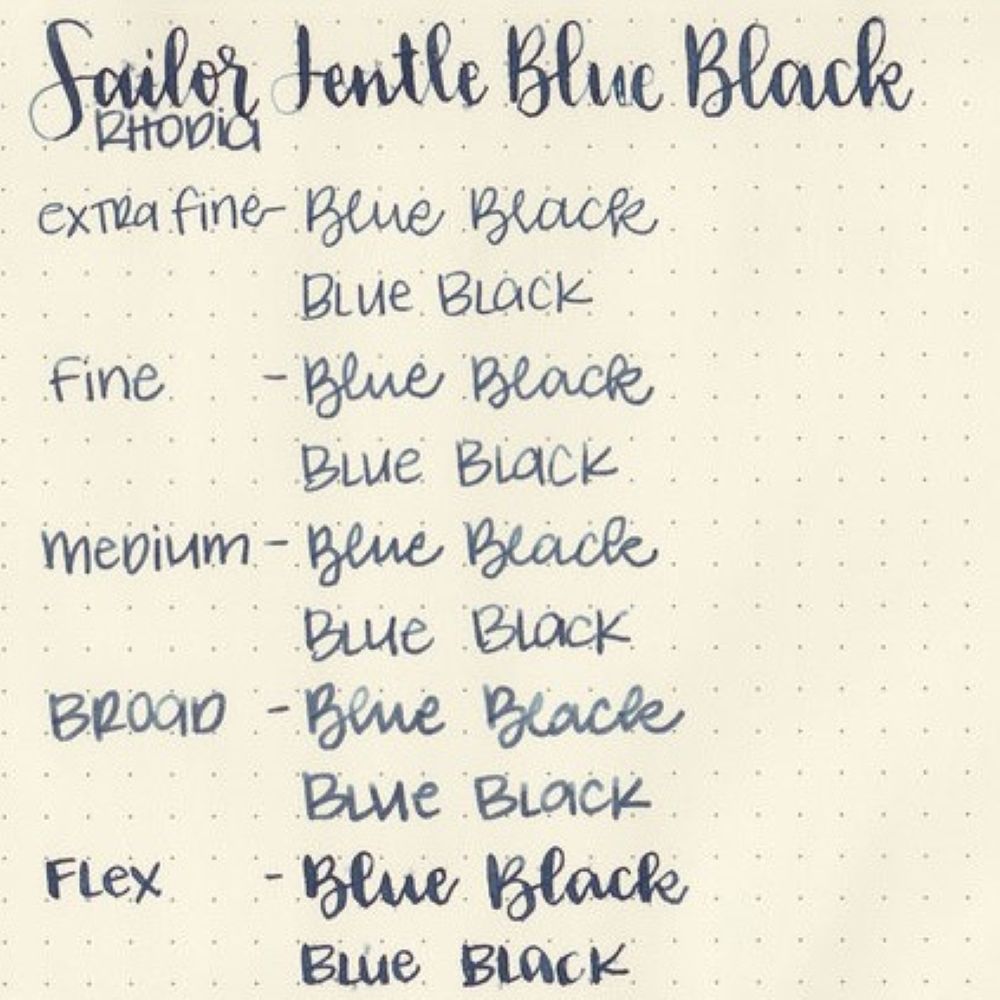 Sailor Jentle Blue Black
RHODIA
extra fine - Blue Black
Blue Black
Fine - Blue Black
Blue Black
medium - Blue Black
Blue Black
BROAD - Blue Black
Blue Black
Flex - Blue Black
Blue Black